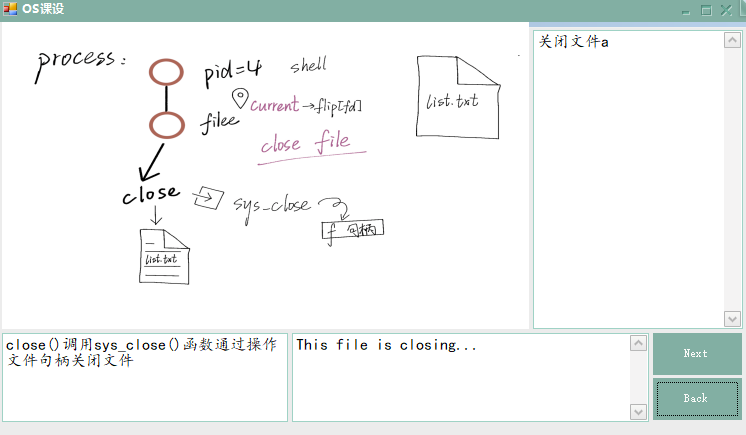 OS课设
process:
pid=4 shell
current→flip[fd]
filee
close file
list.txt
close
sys_close
f 句柄
list.txt
关闭文件a
close()调用sys_close()函数通过操作
文件句柄关闭文件
This file is closing...
Next
Back